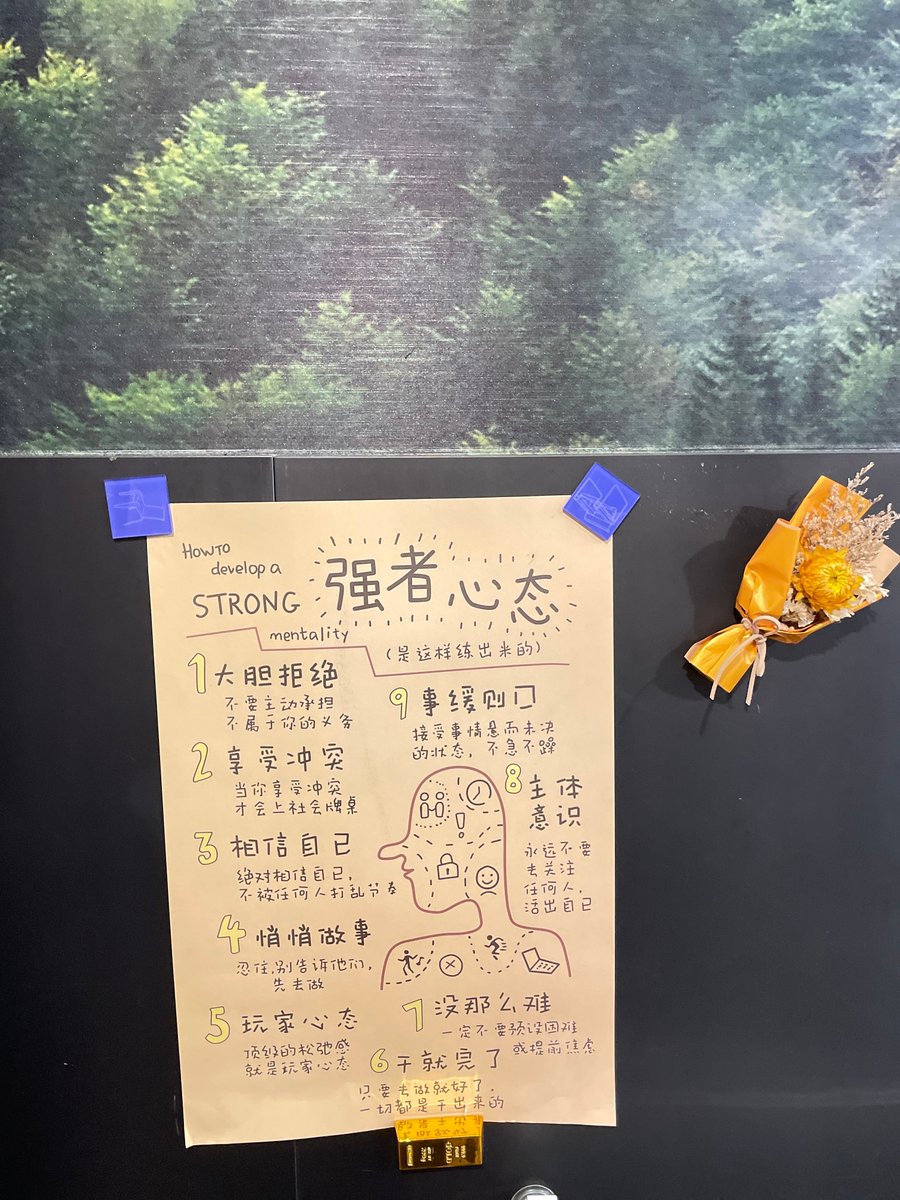 HOWTO
develop a
STRONG
mentality
强者心态
(是这样练出来的)
1 大胆拒绝
不要主动承担
不属于你的义务
2 享受冲突
当你享受冲突
才会上社会牌桌
3 相信自己
绝对相信自己,
不被任何人打乱节奏
4 悄悄做事
忍住,别告诉他们,
先去做
5 玩家心态
顶级的松弛感
就是玩家心态
6 干就完了
只要去做就好了,
一切都是干出来的
7 没那么难
一定不要预设困难
或提前焦虑
8 主体
意识
永远不要
去关注
任何人,
活出自己
9 事缓则
接受事情悬而未决
的状态,不急不躁